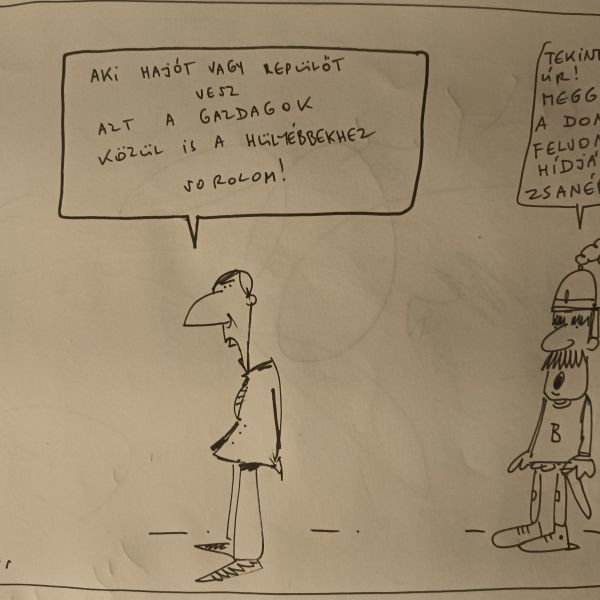 AKI HAJÓT VAGY REPÜLŐT
VESZ
AZT A GAZDAGOK
KÖZÜL IS A HÜLYÉBBEKHEZ
SOROLOM!
TEKINT
ÚR!
MEGG
A DON
FELVON
HÍDJÁ
ZSANÉ
B